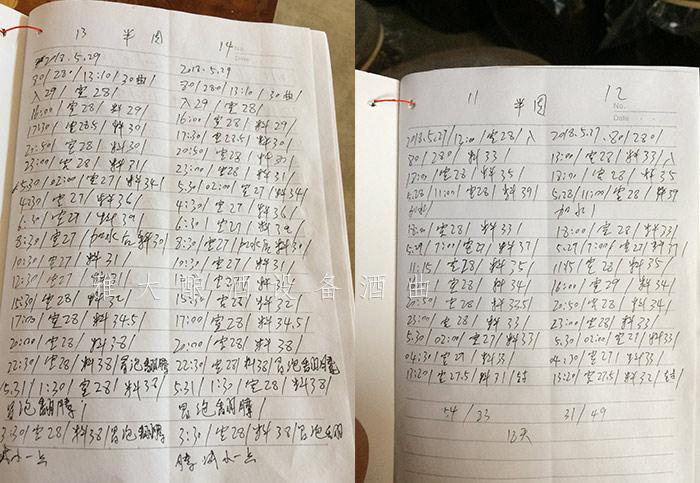 13 半肉 14
No.
Date
2018.5.29 2018.5.29
30/28°/13:10/30曲/ 30/280/13:10/30曲/
入29/室28/ 入29/室28/
16:00/室28/料29/ 16:00/室28/料29/
17:30/室285/料30/ 17:30/室285/料30/
20:50/室28/料30/ 20:50/室28/料30
23:00/室28/料31/ 23:00/室28/料31/
5.30/02:00/室27/料34/ 5.30/02:00/室27/料34/
4:30/室27/料36/ 4:30/室27/料36/
6:30/室27/料39 6:30/室27/料39/
8:30/室27/加水后料30/ 8:30/室27/加水后料30/
10:30/室27/料31/ 10:30/室27/料31/
12:30/室27/料31/ 12:30/室27/料31/
15:30/室28/料32/ 15:30/室28/料32/
17:00/室28/料34.5/ 17:00/室28/料34.5/
20:00/室28/料38/ 20:00/室28/料38/
22:30/室28/料38/冒泡翻腾 22:30/室28/料38/冒泡翻腾
5.31/1:30/室28/料38/ 5.31/1:30/室28/料38/
冒泡翻腾/ 冒泡翻腾/
3:30/室28/料38/冒泡翻腾 3:30/室28/料38/冒泡翻
减小一点 腾减小一点
11 半肉 12
No.
Date
2018.5.27/12:00/室28/入 2018.5.27./30/280/
30/280/料33/ 13:00/室28/料33/入
18:00/室28/料35/ 18:00/室28/料35
5.28/11:00/室28/料39/ 5.28/11:00/室28/料39
加水/ 加水/
18:00/室28/料33/ 18:00/室28/料33/
5.29/7:00/室27/料37/ 5.29/7:00/室27/料37/
11:15/室28/料35/ 11:15/室28/料35/
室28/料34/ 16:00/室29/料34/
20:50/室28/料33.5/ 20:50/室28/料34/
23:00/室28/料33/ 23:00/室28/料33/
5.30/02:00/室27/料33/ 5.30/02:00/室27/料33/
04:30/室27/料33/ 04:30/室27/料33/
13:20/室27.5/料31/封 13:20/室27.5/料32/封
54/53 31/49
12天
雅大酿酒设备酒曲